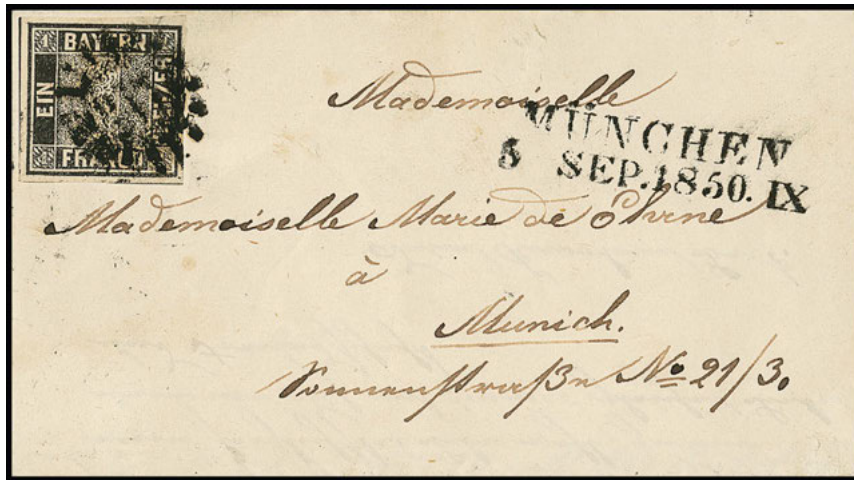 BAYERN
EIN
KREUZER
FRANCO
Mademoiselle
MÜNCHEN
5 SEP. 1850. IX
Mademoiselle Marie de
à
Munich.
Sonnenstraße No 21/3.